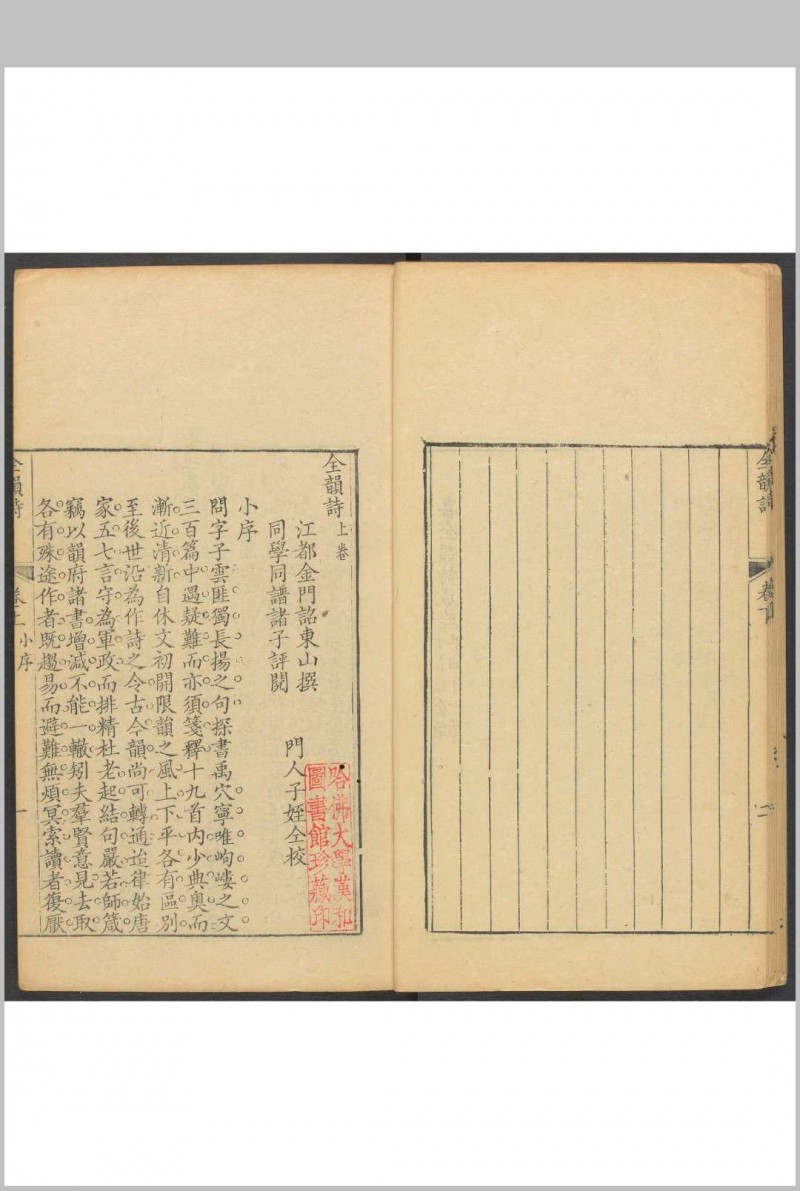 全韻詩
卷下
二
全韻詩上卷
江都金門詔東山撰
同學同譜諸子評閱
門人子姪仝校
哈佛大學漢和
圖書館珍藏印
小序
問字子雲匪獨長揚之句探書禹穴寧唯岣嶁之文
三百篇中遇疑難而亦須箋釋十九首內少典奧而
漸近清新自休文初開限韻之風上下平各有區別
至後世沿為作詩之令古今韻尚可轉通迨律始唐
家五七言守為軍政而排精杜老起結句嚴若師箴
竊以韻府諸書增減不能一轍矧夫羣賢意見去取
各有殊途作者既趨易而避難無煩冥索讀者復厭
全韻詩
卷上
小序
一